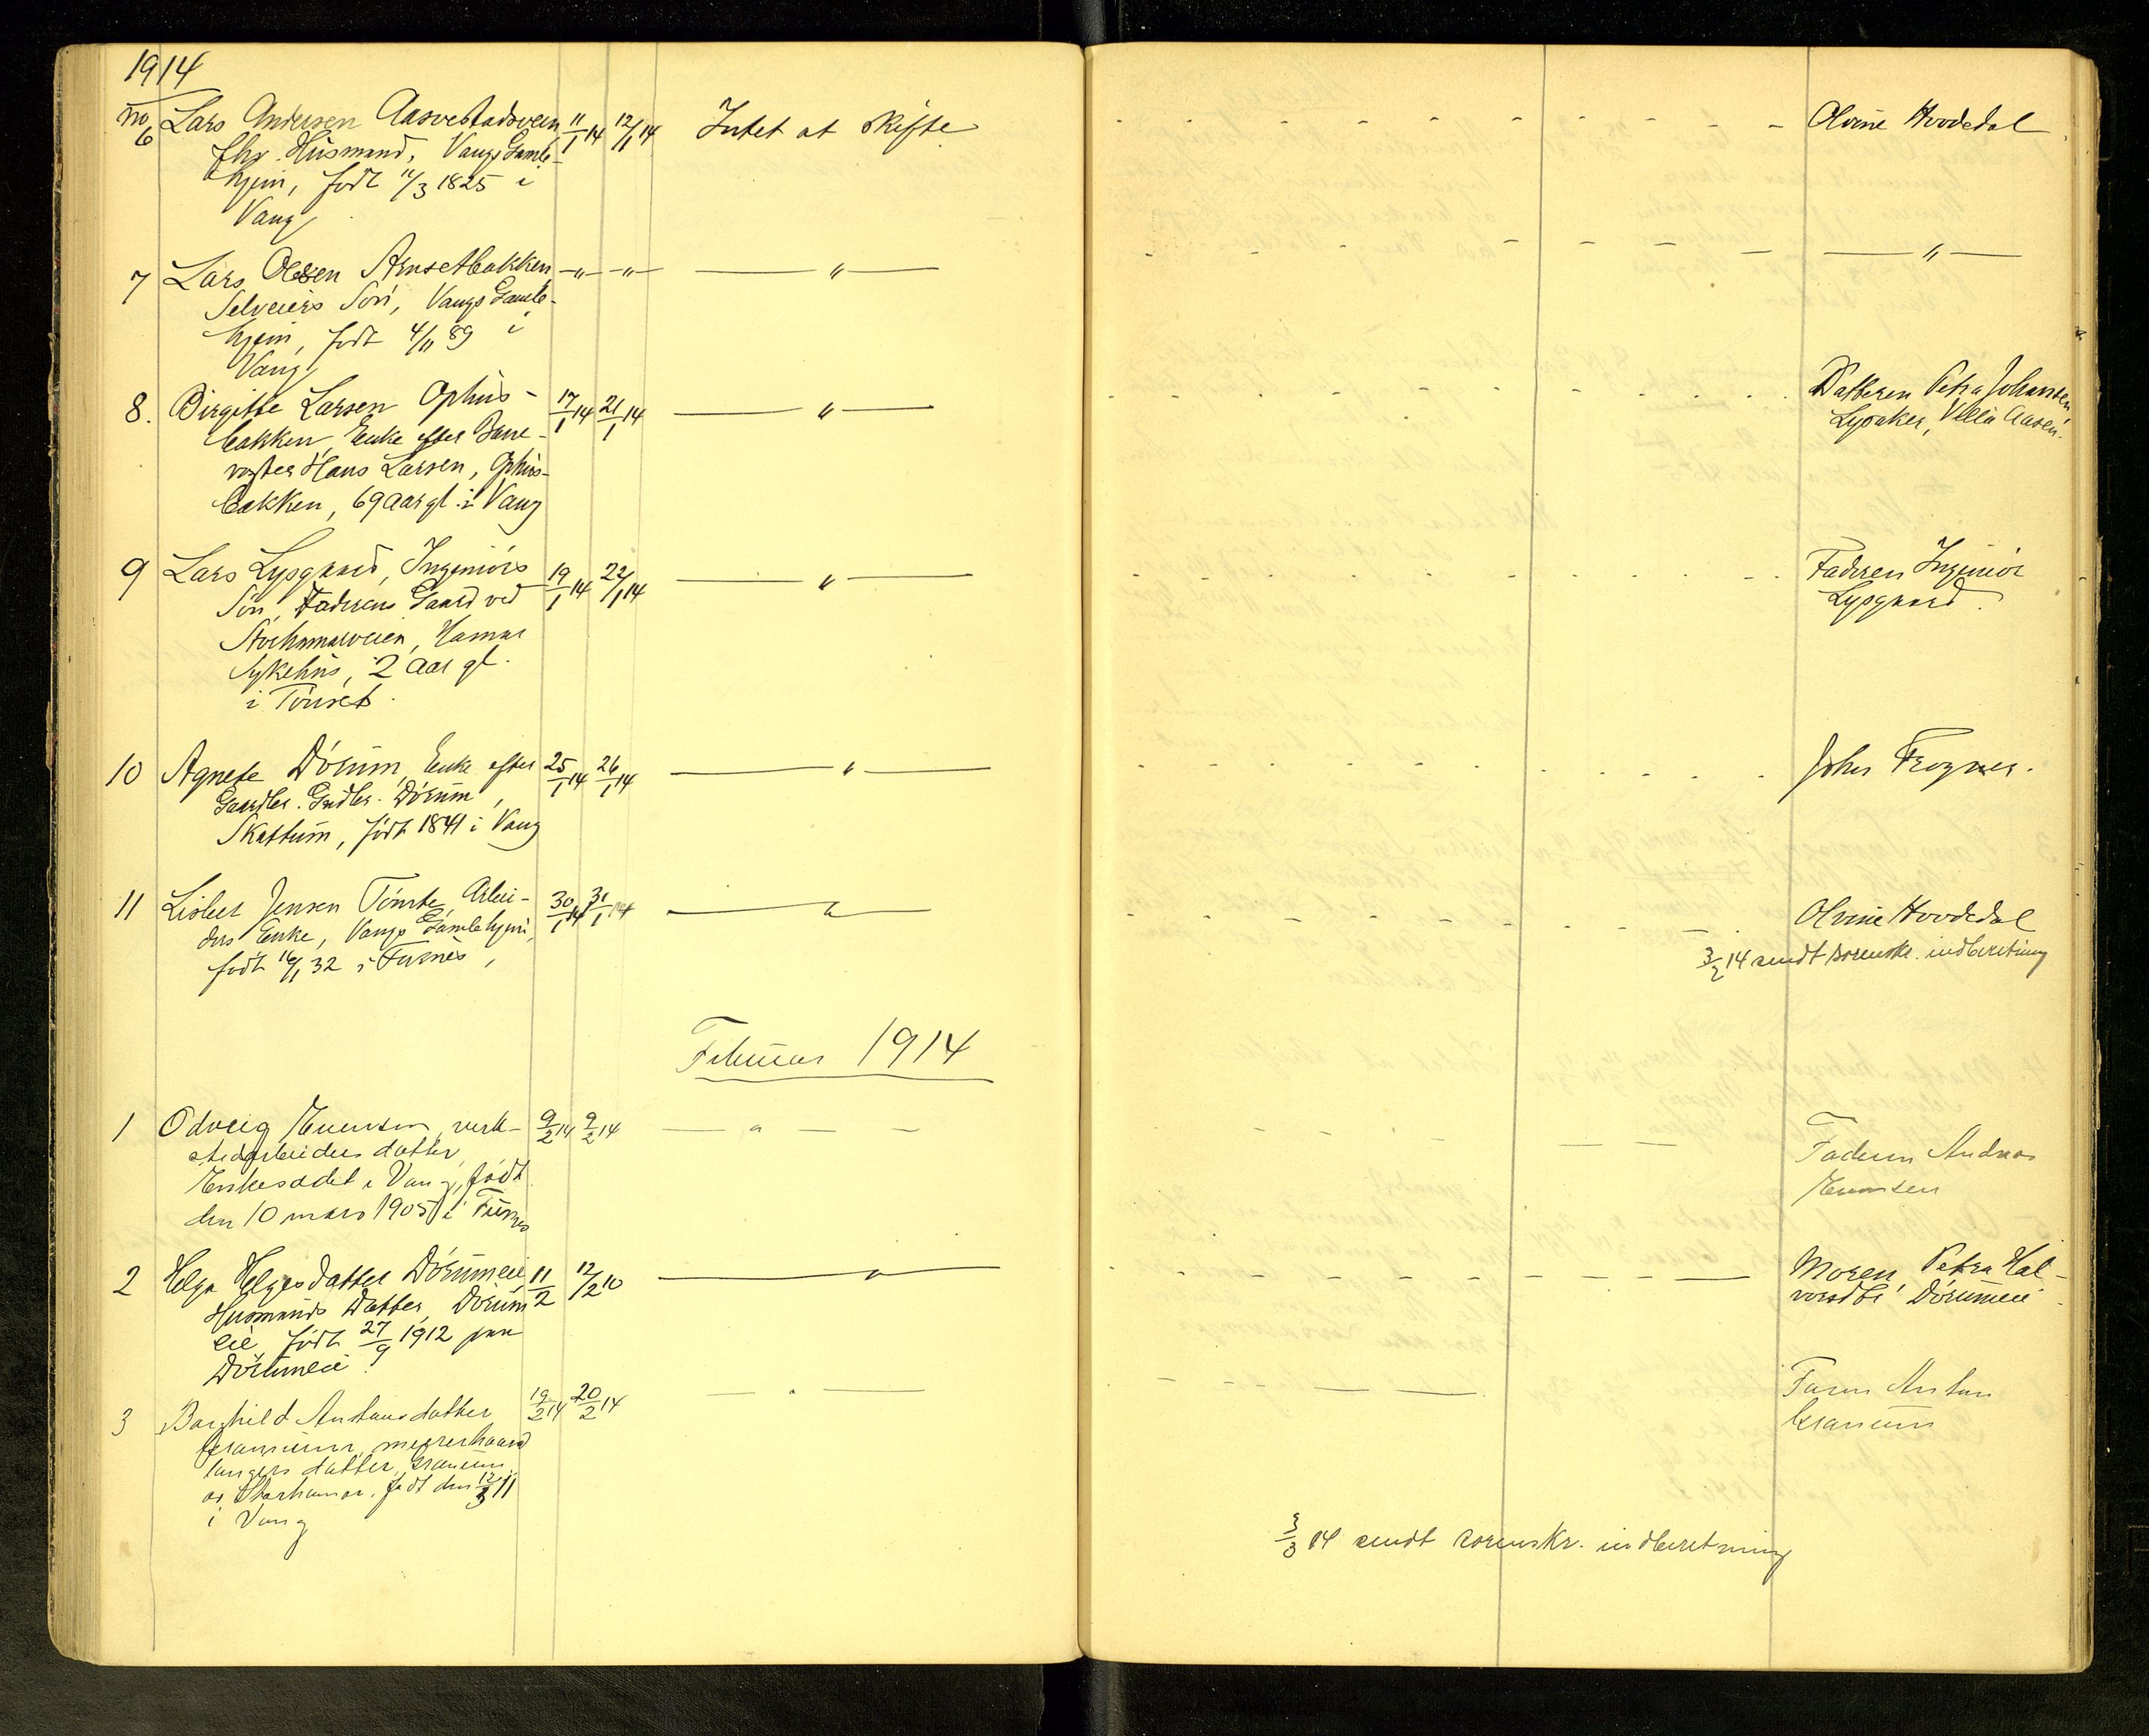 1914
No 6 Lars Andersen Aasvestadsveen 11/1 14 12/1 14 Intet at skifte - - - - - Olvine Hoodedal
fhv. Husmand, Vangs Gamle-
hjem, født 11/3 1825 i
Vang
7 Lars Olsen Arnsetbakken -"- -"- — " — - - - — " —
Selveiers Søn, Vangs Gamle-
hjem, født 4/11 89 i
Vang
8. Birgitte Larsen Ophus- 17/1 14 21/1 14 — " — Datteren Petra Johansen
bakken, Enke efter Bane- Lysaker, Villa Aasen.
vogter Hans Larsen, Ophus-
bakken, 69 aar gl. i Vang
9 Lars Lysgaard, Ingeniørs 19/1 14 22/1 14 — " — Faderen Ingeniør
Søn, Faderens Gaard ved Lysgaard.
Storhamarveien, Hamar
Sykehus, 2 aar gl.
i Tønset.
10 Agnete Dørum, Enke efter 25/1 14 26/1 14 — " — John Frogner.
Gaardbr. Gudbr. Dørum,
Skattum, født 1841 i Vang
11 Lisbet Jensen Tomte, Arbei- 30/1 14 31/1 14 — " — Olvine Hoodedal
ders Enke, Vangs Gamlehjem, 3/2 14 sendt sorenskr. indberetning
født 16/1 32 i Furnes,
Februar 1914
1 Odveig Evensen, verk- 9/2 14 9/2 14 — " — Faderen Andreas
stedarbeiders datter, Evensen
Enkesædet i Vang, født
den 10 mars 1905 i Furnes
2 Helga Helgesdatter Dørumeie 11/2 12/2 10 — " — Moren Petra Hal-
Husmands Datter, Dørum vorsdtr Dørumeie
eie, født 27/9 1912 paa
Dørumeie.
3 Borghild Antonsdatter 19/2 14 20/2 14 — " — Faren Anton
Granum, Granum
datter, Granum
Storhamar. født den 12/3 11
i Vang
3/3 14 sendt sorenskr. indberetning